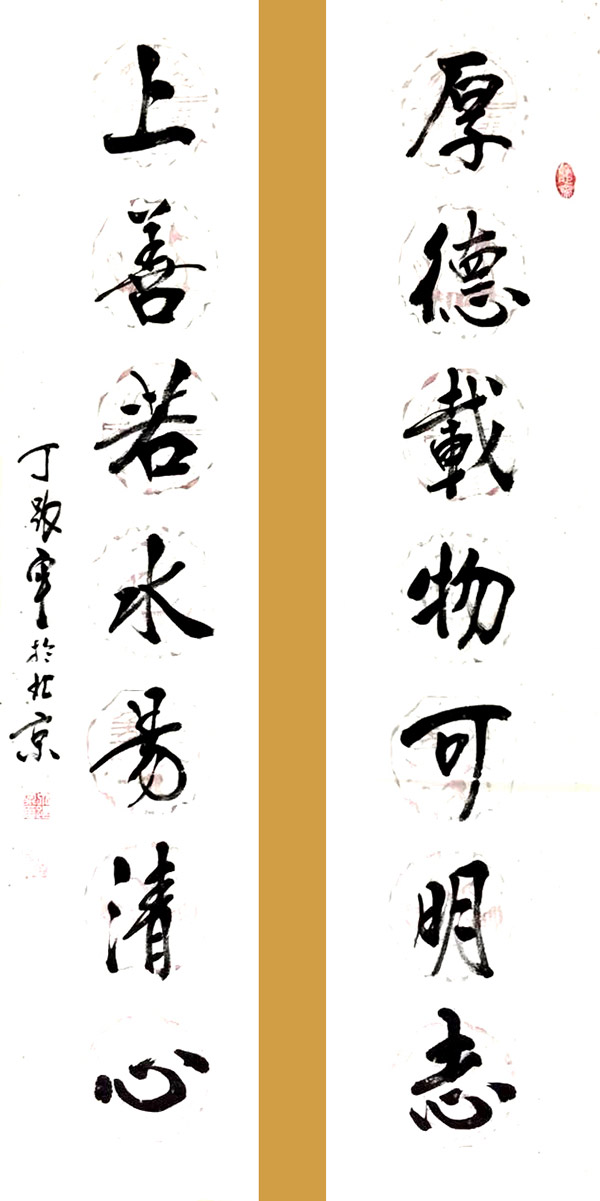 厚德載物可明志
上善若水易清心
丁敬軍於北京